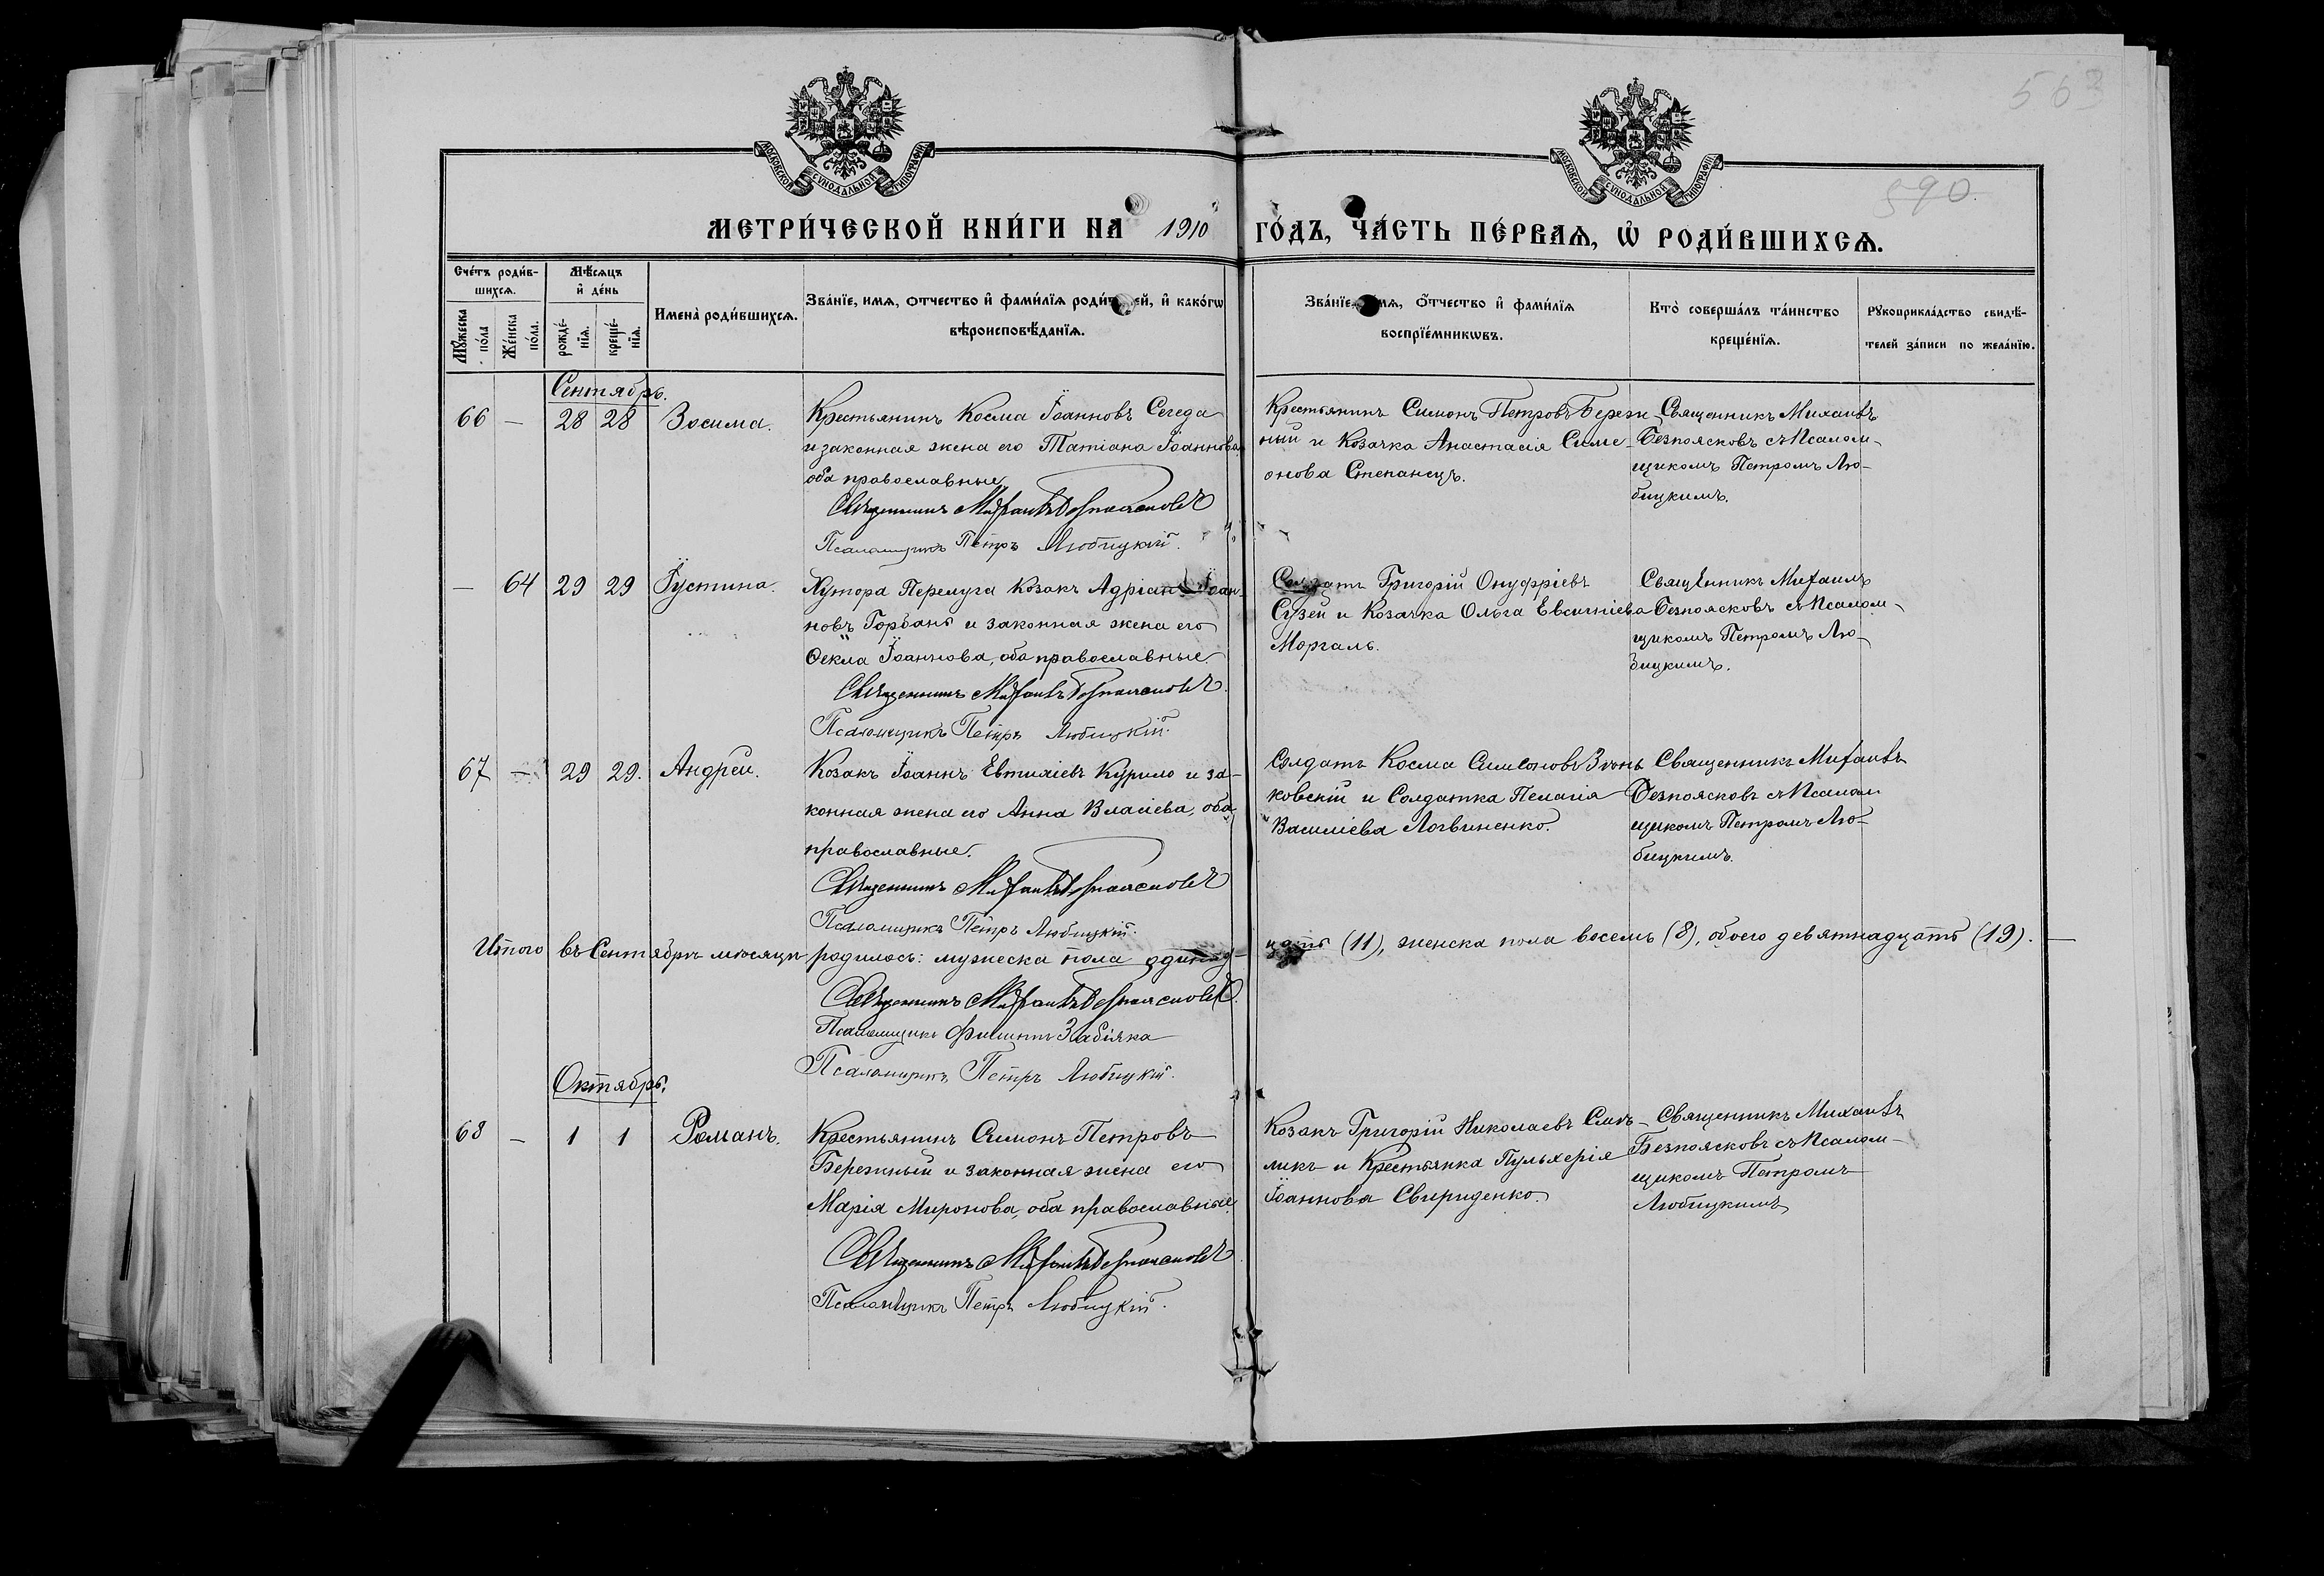 563
590
МОСКОВСКОЙ СѴНОДАЛЬНОЙ ТИПОГРАФІИ
МОСКОВСКОЙ СѴНОДАЛЬНОЙ ТИПОГРАФІИ
МЕТРИ́ЧЕСКОЙ КНИ́ГИ НА 1910 ГО́ДЪ, ЧА́СТЬ ПЕ́РВАѦ, Ѡ҆ РОДИ́ВШИХСѦ.
Сче́тъ роди́в-
шихсѧ.
Мꙋжеска по́ла
Же́нска по́ла.
Мѣ́сѧцъ
и҆ де́нь
рожде́-
нїѧ.
креще́-
нїѧ.
Имена̀ роди́вшихсѧ.
Зва́нїе, имѧ, ѻтчество и҆ фами́лїѧ роди́телей, и҆ како́гѡ
вѣроисповѣ́данїѧ.
Зва́нїе, имѧ, ѻ҆́тчество и҆ фами́лїѧ
воспрїе́мникѡвъ.
Кто̀ соверша́лъ та́инство
креще́нїѧ.
Рꙋкоприкла́дство свидѣ́-
телей за́писи по жела́нїю.
Сентябрь.
66 — 28 28 Зосима.
Крестьянинъ Косма Іоанновъ Сегеда
и законная жена его Татіана Іоаннова,
оба православные
Священникъ Михаилъ Безпоясковъ
Псаломщикъ Петръ Любицкій.
Крестьянинъ Симонъ Петровъ Береж-
ный и Козачка Анастасія Симе-
онова Степанецъ.
Священникъ Михаилъ
Безпоясковъ съ Псалом-
щикомъ Петромъ Лю-
бицкимъ.
— 64 29 29 Іустина.
Хутора Перемуга Козакъ Адріанъ Іоан-
новъ Горбань и законная жена его
Ѳекла Іоаннова, оба православные.
Священникъ Михаилъ Безпоясковъ
Псаломщикъ Петръ Любицкій.
Солдатъ Григорій Онуфріевъ
Сузей и Козачка Ольга Евсигніева
Моргаль.
Священникъ Михаилъ
Безпоясковъ съ Псалом-
щикомъ Петромъ Лю-
бицкимъ.
67 — 29 29. Андрей.
Козакъ Іоаннъ Евтихіевъ Курило и за-
конная жена его Анна Власіева, оба
православные.
Священникъ Михаилъ Безпоясковъ
Псаломщикъ Петръ Любицкій.
Солдатъ Косма Симеоновъ
ковскій и Солдатка Пелагія
Василіева Логвиненко.
Священникъ Михаилъ
Безпоясковъ съ Псалом
щикомъ Петромъ Лю-
бицкимъ.
Итого въ Сентябрѣ мѣсяцѣ родилось: мужеска пола одинад-цать (11), женска пола восемь (8), обоего девятнадцать (19).
Священникъ Михаилъ Безпоясковъ.
Псаломщикъ Филиппъ Забіяка
Псаломщикъ Петръ Любицкій.
Октябрь.
68 — 1 1 Романъ.
Крестьянинъ Симонъ Петровъ
Бережный и законная жена его
Марія Миронова, оба православные.
Священникъ Михаилъ Безпоясковъ
Псаломщикъ Петръ Любицкій.
Козакъ Григорій Николаевъ
и Крестьянка Пульхерія
Іоаннова Свириденко.
Священникъ Михаилъ
Безпоясковъ съ Псалом-
щикомъ Петромъ
Любицкимъ